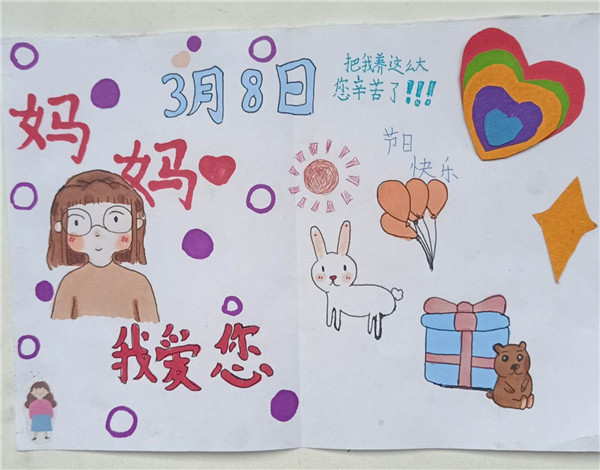 3月8日
把我养这么大
您辛苦了!!!
妈妈
节日
快乐
我爱您